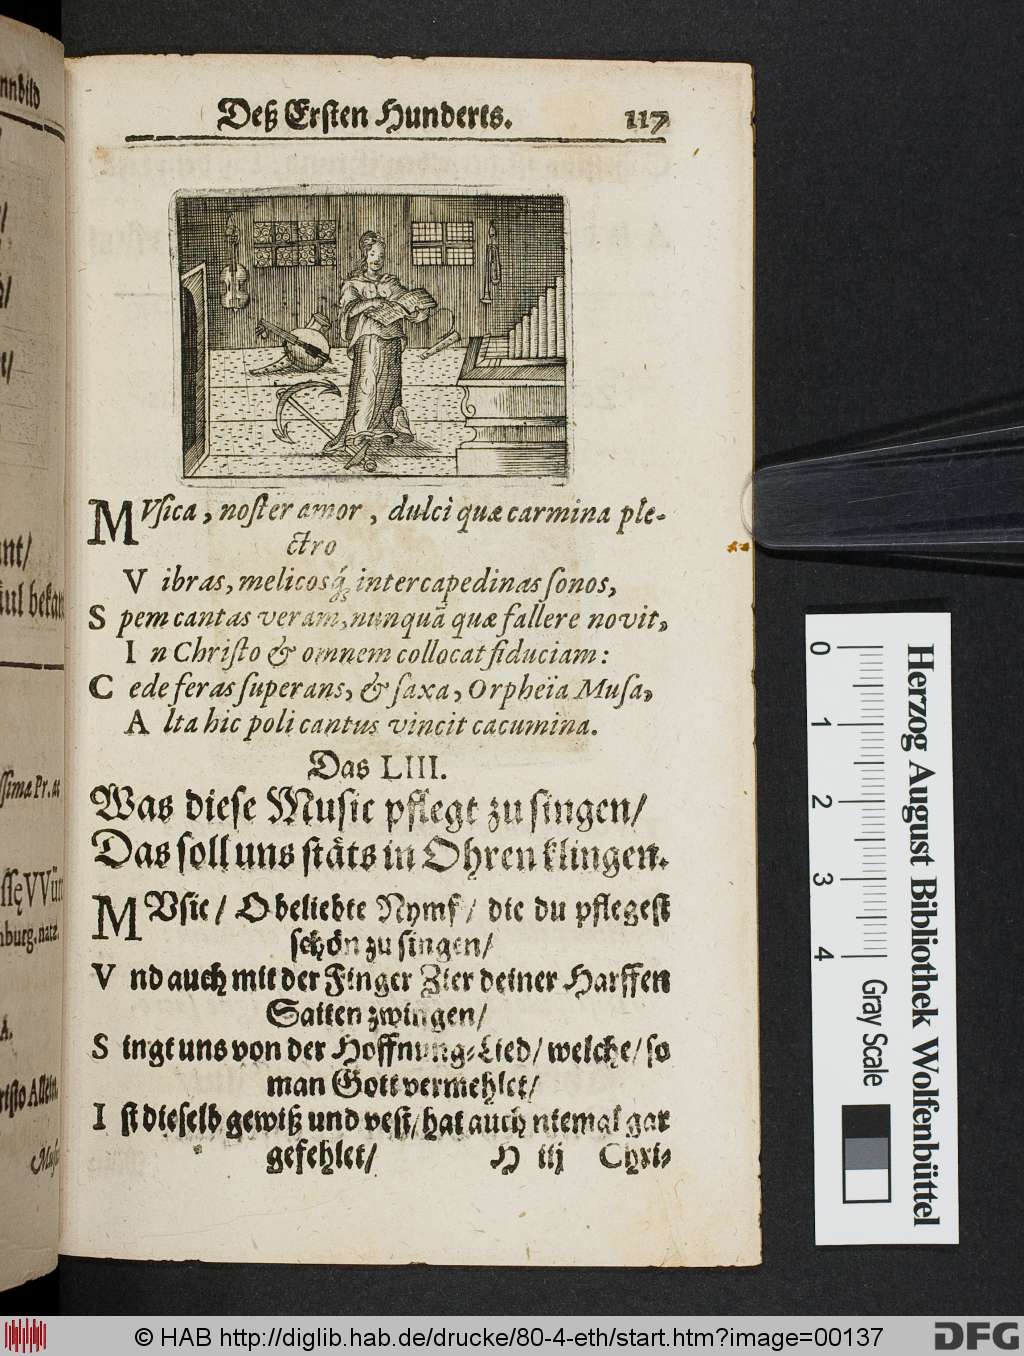 Deß Ersten Hunderts. 117
MVsica, noster amor, dulci quæ carmina ple-
ctro
Vibras, melicosq́; intercapedinas sonos,
Spem cantas veram, nunquā quæ fallere novit,
In Christo & omnem collocat fiduciam:
Cede feras superans, & saxa, Orpheïa Musa,
Alta hic poli cantus vincit cacumina.
Das LIII.
Was diese Music pflegt zu singen/
Das soll uns stäts in Ohren klingen.
MUsic/ O beliebte Nymf/ die du pflegest
schön zu singen/
Und auch mit der Finger Zier deiner Harffen
Saiten zwingen/
Singt uns von der Hoffnung-Lied/ welche/ so
man Gott vermehlet/
Ist dieselb gewiß und vest/ hat auch niemal gar
gefehlet/ H iij Chri-
nnbild
ant/
äul bekan
ssima Pr. ac
nburg. natz.
A.
risto Allein.
0 1 2 3 4
Herzog August Bibliothek Wolfenbüttel
Gray Scale
© HAB http://diglib.hab.de/drucke/80-4-eth/start.htm?image=00137
DFG